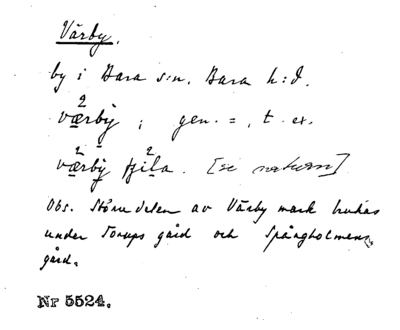 Värby.
by i Bara s:n. Bara h:d.
væ̀rbý ; gen. = , t. ex.
væ̀rbý fjíla. [se
Obs. Större delen av Värby mark brukas
under Torups gård och Spångholmens
gård.
Nr 5524.